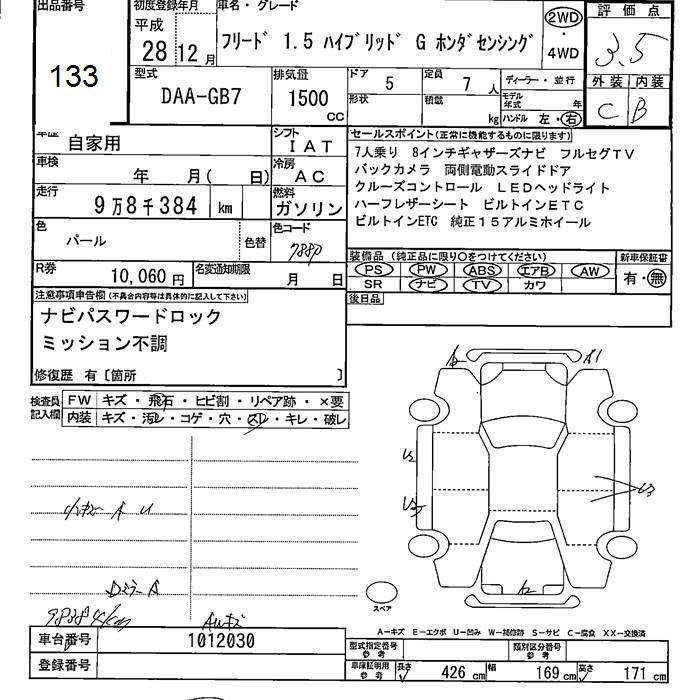 出品番号
133
初度登録年月
平成
28 12 月
車名・グレード
フリード 1.5 ハイブリッド G ホンダセンシング
2WD
・
4WD
評価点
3.5
外装 内装
C B
型式
DAA-GB7
排気量
1500
CC
ドア 5
定員 7 人
形状
積載 kg
ディーラー・並行
モデル年式 年
ハンドル 左・右
車歴
自家用
シフト
IAT
車検
年 月( 日)
冷房
AC
走行
9万8千384 km
燃料
ガソリン
色
パール
色替
色コード
R券
10,060 円
名変通知期限
月 日
セールスポイント(正常に機能するものに限ります)
7人乗り 8インチギャザーズナビ フルセグTV
バックカメラ 両側電動スライドドア
クルーズコントロール LEDヘッドライト
ハーフレザーシート ビルトインETC
ビルトインETC 純正15アルミホイール
装備品(純正品に限り○をつけてください)
PS PW ABS エアB AW
SR ナビ TV カワ
新車保証書
有・無
後日品
注意事項申告欄(不具合内容等は具体的に記入して下さい)
ナビパスワードロック
ミッション不調
修復歴 有〔箇所 〕
検査員
記入欄
FW キズ・飛石・ヒビ割・リペア跡・×要
内装 キズ・汚レ・コゲ・穴・スレ・キレ・破レ
A
A1
U2
U3
A2
スペア
A U
Dミラー A
98384km
AWキズ
A-キズ E-エクボ U-凹み W-補修跡 S-サビ C-腐食 XX-交換済
車台番号
1012030
登録番号
型式指定番号
参考
類別区分番号
参考
車庫証明用
参考
長さ 426 cm 幅 169 cm 高さ 171 cm